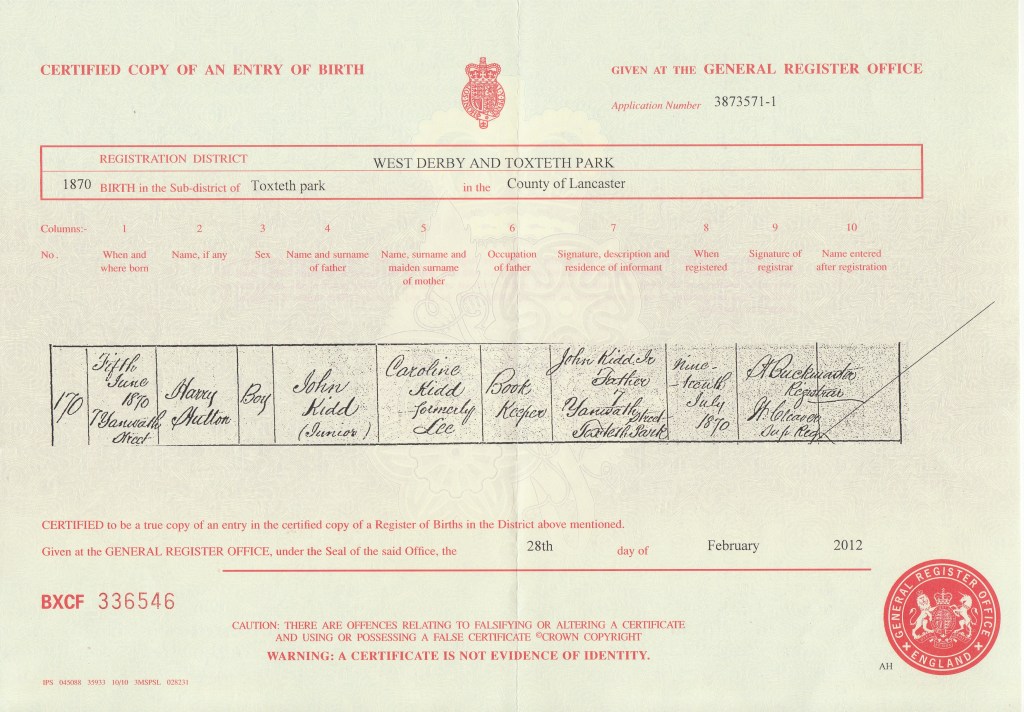 CERTIFIED COPY OF AN ENTRY OF BIRTH
GIVEN AT THE GENERAL REGISTER OFFICE
Application Number 3873571-1
REGISTRATION DISTRICT WEST DERBY AND TOXTETH PARK
1870 BIRTH in the Sub-district of Toxteth park in the County of Lancaster
Columns:- 1 2 3 4 5 6 7 8 9 10
No. When and where born
Name, if any
Sex
Name and surname of father
Name, surname and maiden surname of mother
Occupation of father
Signature, description and residence of informant
When registered
Signature of registrar
Name entered after registration
170
Fifth
June
1870
7 Yanwath
Street
Harry
Hutton
Boy
John
Kidd
(Junior)
Caroline
Kidd
formerly
Lee
Book
Keeper
John Kidd Jr
Father
7
Yanwath Street
Toxteth Park
Nine-
teenth
July
1870
Registrar
CERTIFIED to be a true copy of an entry in the certified copy of a Register of Births in the District above mentioned.
Given at the GENERAL REGISTER OFFICE, under the Seal of the said Office, the 28th day of February 2012
BXCF 336546
CAUTION: THERE ARE OFFENCES RELATING TO FALSIFYING OR ALTERING A CERTIFICATE
AND USING OR POSSESSING A FALSE CERTIFICATE ©CROWN COPYRIGHT
WARNING: A CERTIFICATE IS NOT EVIDENCE OF IDENTITY.
GENERAL REGISTER OFFICE
ENGLAND
AH
IPS 045088 35933 10/10 3MSPSL 028231